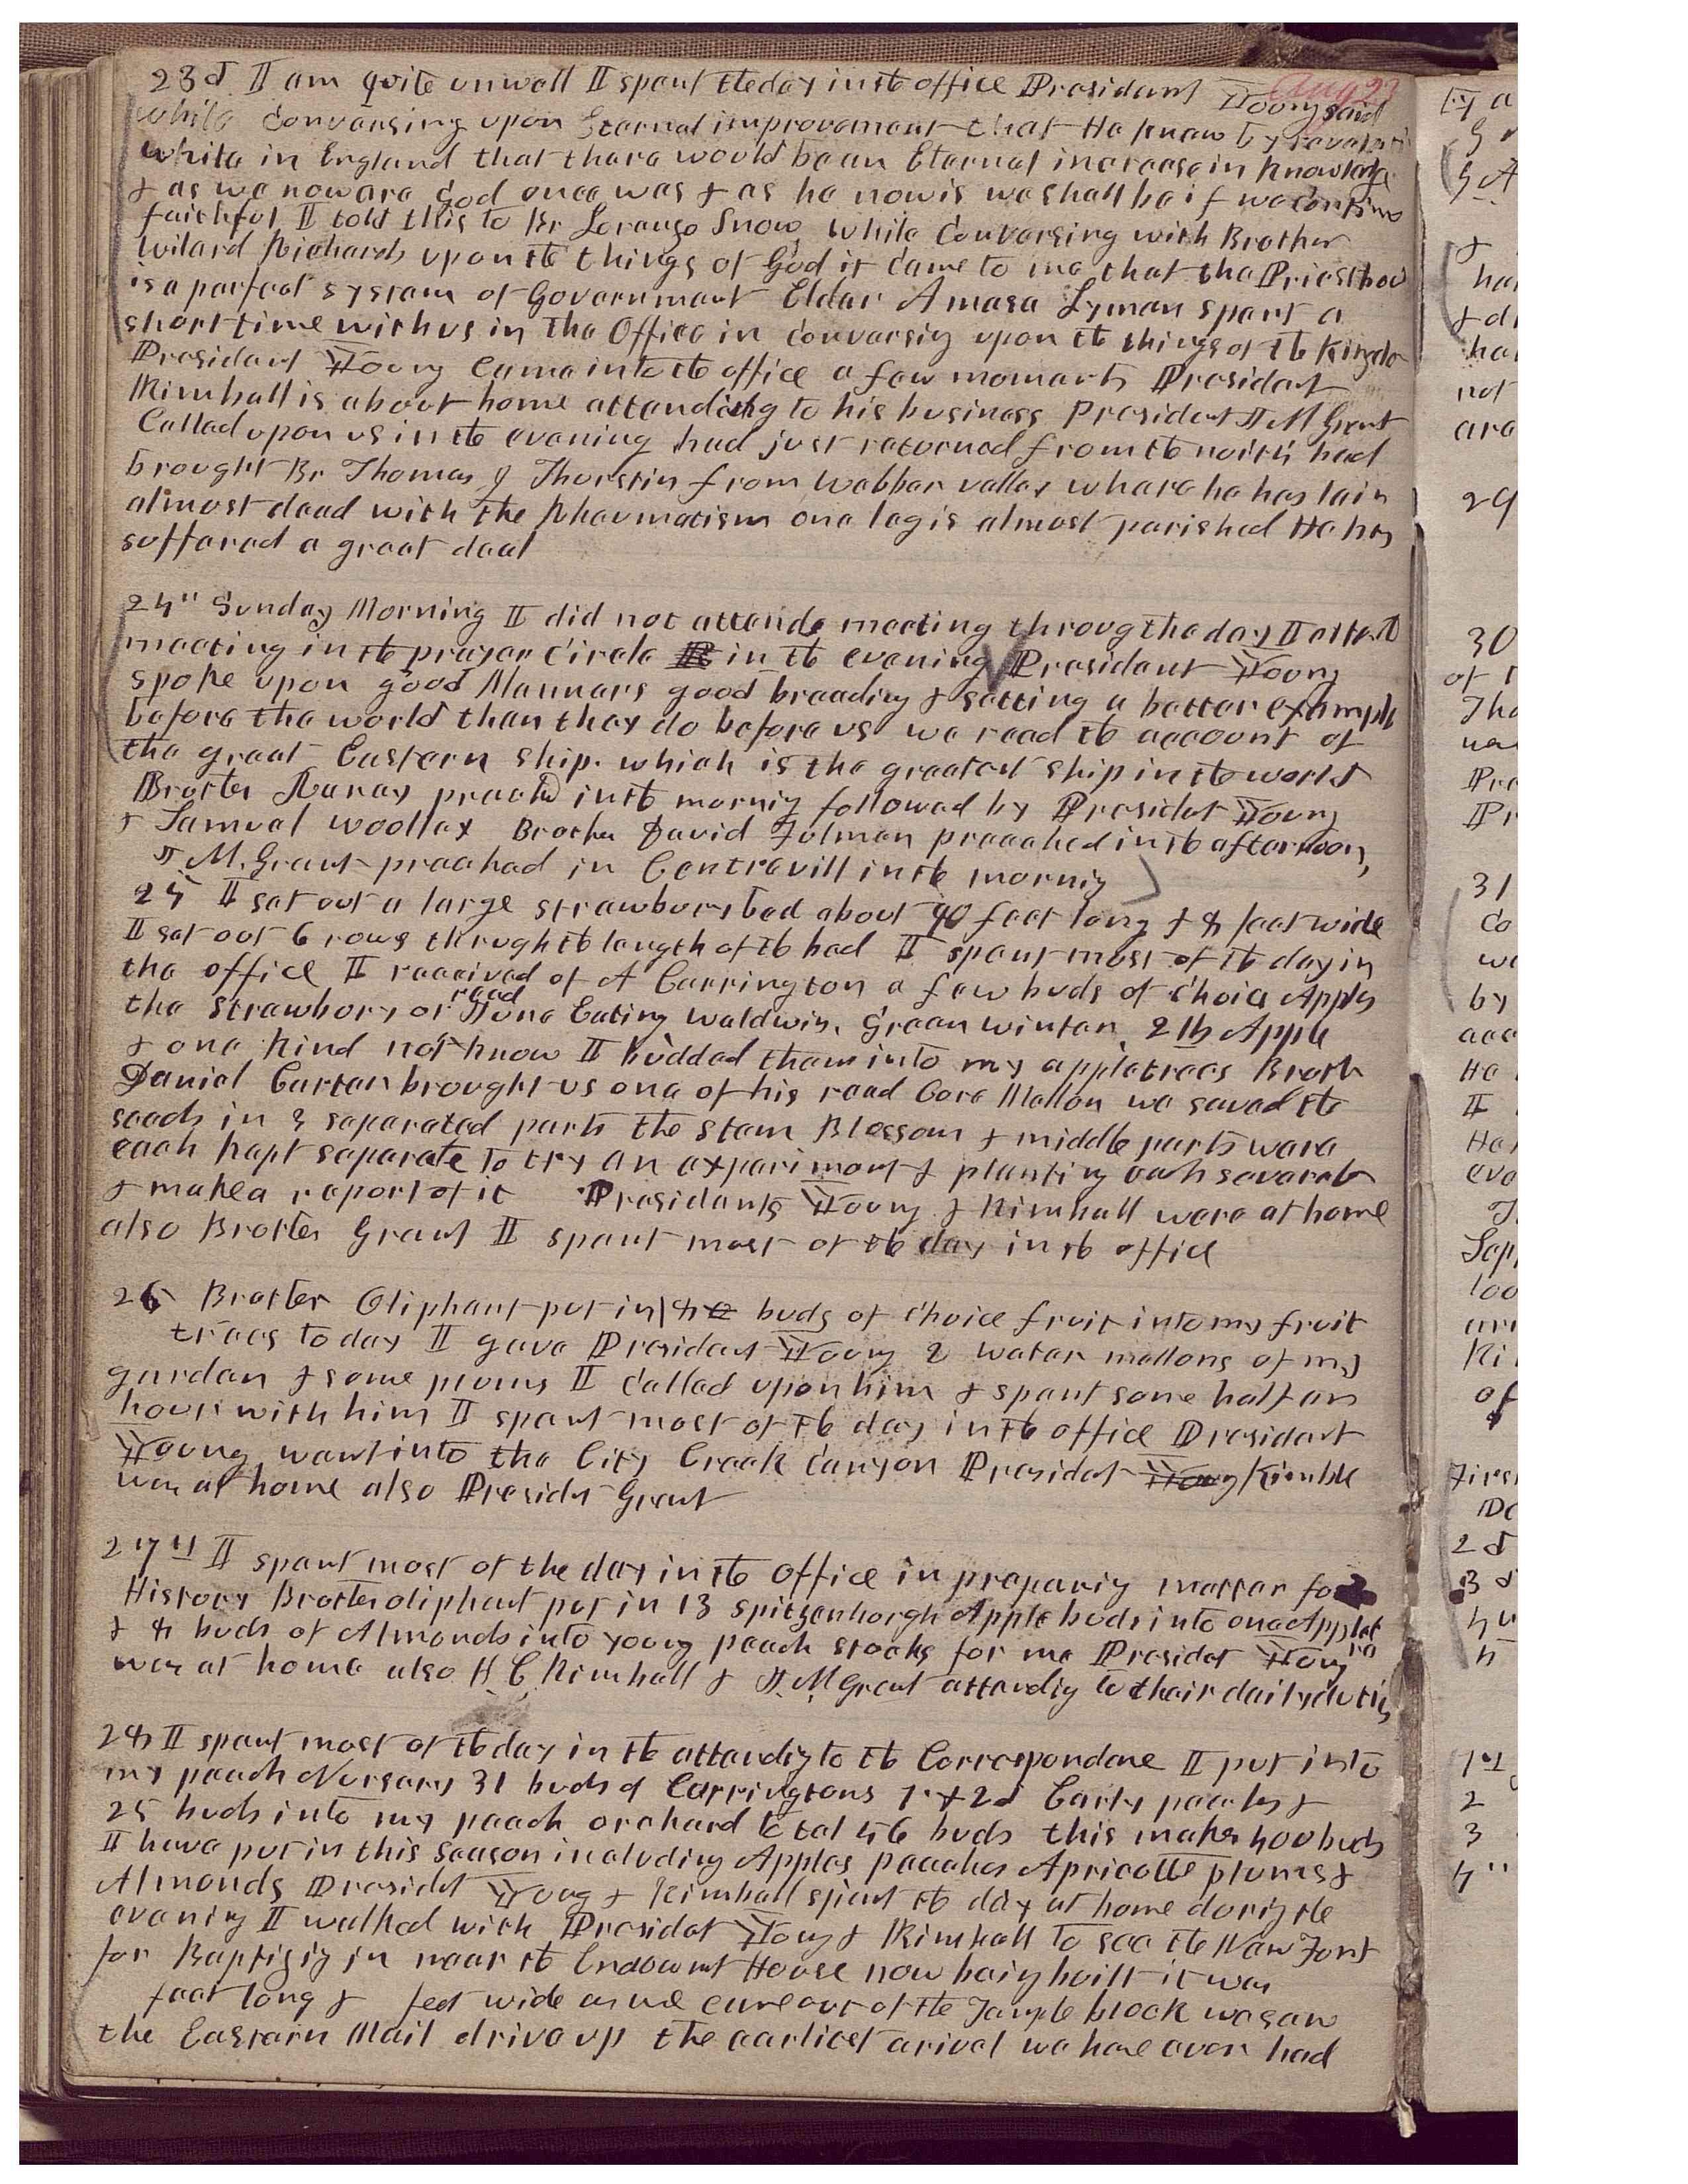 Aug 23
23d I am quite unwell I spent the day in the office President Young said
while Conversing upon Eternal improvement that He knew by revelati
while in England that there would be an Eternal increase in knowledge
& as we now are God once was & as he now is we shall be if we continue
faithful I told this to Br Loranzo Snow, while Conversing with Brother
Wilard Richards upon the things of God it came to me that the Priesthood
is a perfect system of Government Elder Amasa Lyman spent a
short time with us in the Office in Conversig upon the things of the Kingdo
President Young Came into the office a few moments President
Kimball is about home attending to his business President J M Grant
Called upon us in the evening had just returned from the north had
brought Br Thomas J Thurstin from Webber valley where he has lain
almost dead with the Rheumatism one leg is almost perished He has
suffered a great deal
24" Sunday Morning I did not attende meeting throug the day I attend
meeting in the prayer Circle in the evening President Young
spoke upon good Manners good breeding & setting a better example
before the world than they do before us we read the account of
the great Eastern ship. which is the greatest ship in the world
Brother preachd in the mornig followed by Presidet Young
& Samuel Woolley Brother David Fulmer preached in the afternoon,
J M. Grant preached in Centrevill in the mornig
25 I set out a large strawbury bed about 40 feet long & 8 feet wide
I set out 6 rows through the length of the bed I spent most of the day in
the office I received of A Carrington a few buds of Choice Apples
the Strawbery or read June Eating Waldwin, Green winter, 2 lb Apple
& one kind not know I budded them into my apple trees Broth
Daniel Carter brought us one of his read Core Mellon we saved the
seeds in 3 separated parts the stem Blossom & middle parts were
each kept separate to try an experiment & planting each severate
& make a report of it Presidents Young & Kimball were at home
also Brother Grant I spent most of the day in the office
26 Brother Oliphant put in 18 buds of choice fruit into my fruit
trees to day I gave President Young 2 water mellons of my
garden & some plums I Called upon him & spent some half an
hour with him I spent most of the day in the office President
Young went into the City Creek Canyon Presidet Young Kimble
was at home also Presidet Grant
27th I spent most of the day in the office in preparig matter for
History Brother oliphant put in 13 spitzenborgh Apple buds into one Apple tre
& 8 buds of Almonds into young peach stocks for me Presidet Young
was at home also H. C. Kimball & J. M Grant attendig to their daily dutis
28 I spent most of the day in the attendig to the Correspondone I put into
my peach Nursery 31 buds of Carringtons 1st & 2d Early peachs &
25 buds into my peach orchard total 56 buds this makes 400 buds
I have put in this season including Apples Peaches Apricotts plums &
Almonds Presidet Young & Kimball spent the day at home durig the
evenig I walked with Presidet Young & Kimball to see the New Font
for Baptizig in near the Endowmt House now beig built it was
feet long & feet wide as we came out of the Temple block we saw
the Eastern Mail drive up the earliest arival we have ever had